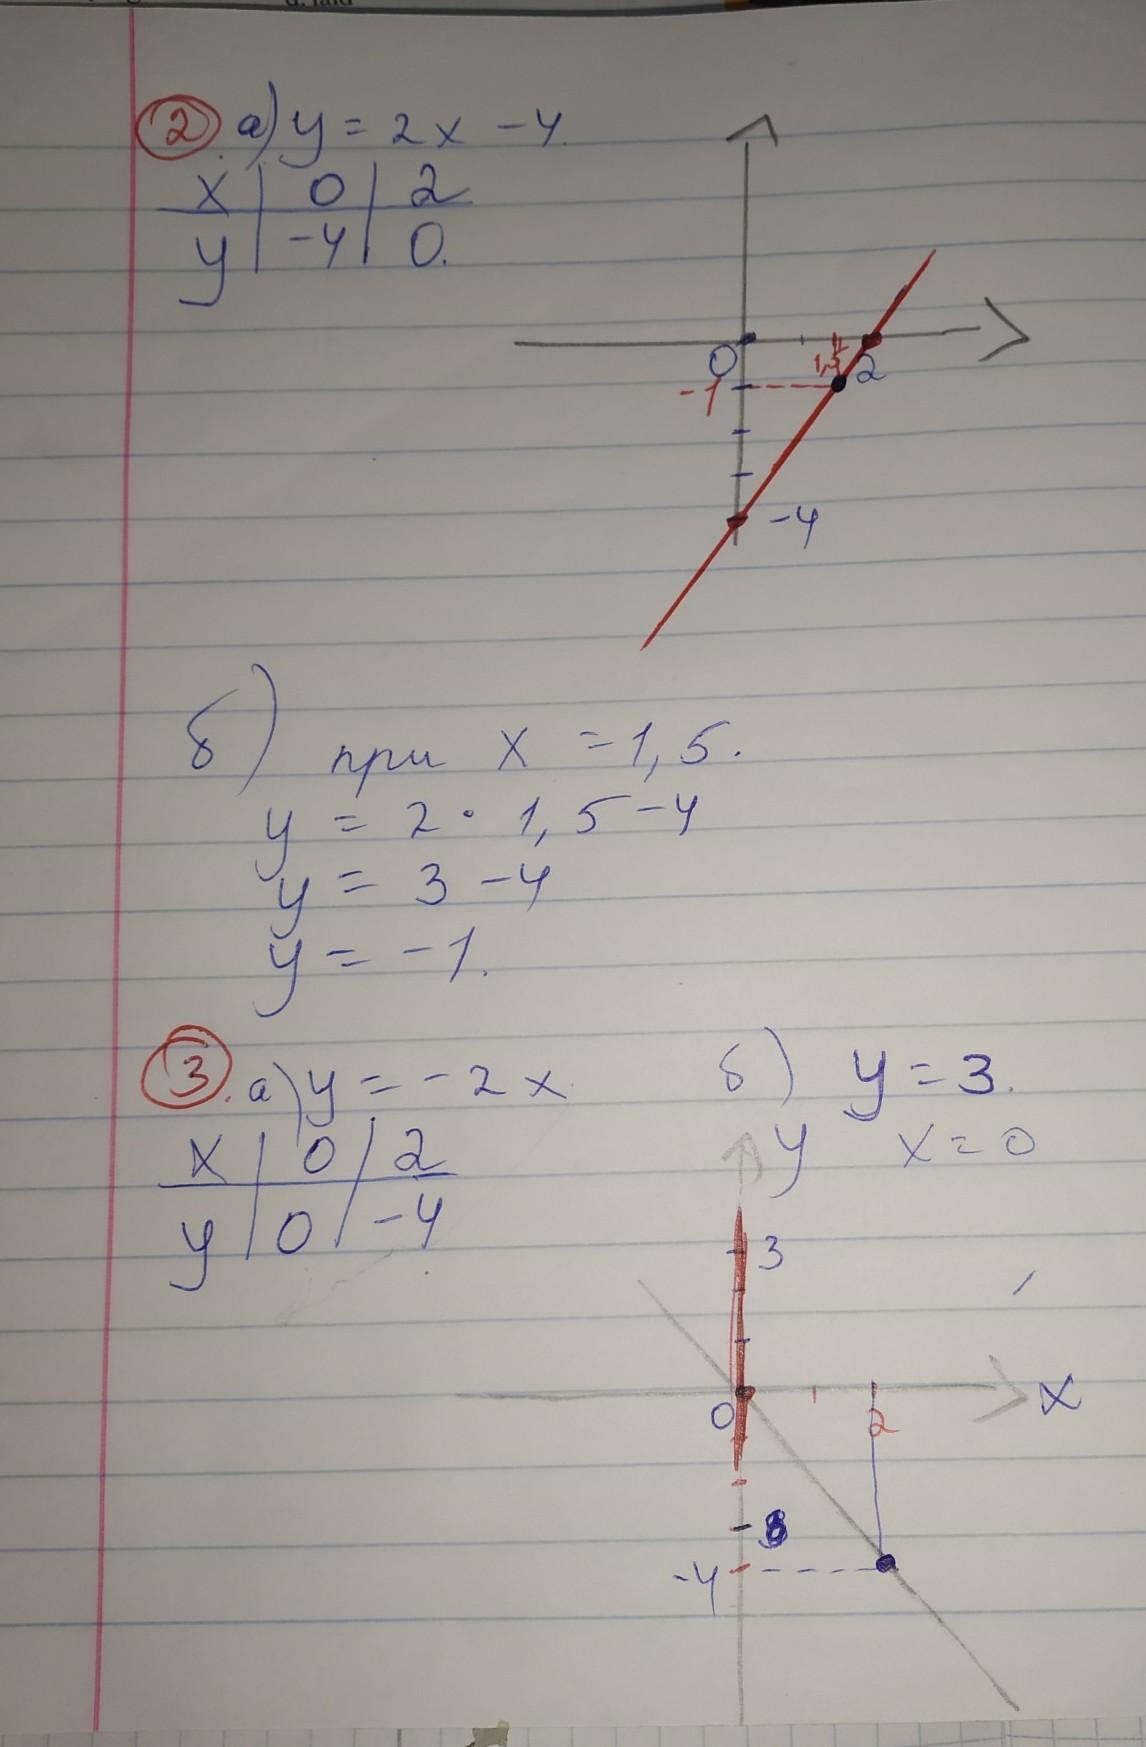 2. а) y = 2x - 4.
x | 0 | 2
y | -4 | 0.
0
1,5
2
-1
-4
б) при x = 1,5.
y = 2 · 1,5 - 4
y = 3 - 4
y = -1.
3. а) y = -2x.
x | 0 | 2
y | 0 | -4
б) y = 3.
x = 0
y
3
0
2
x
-4